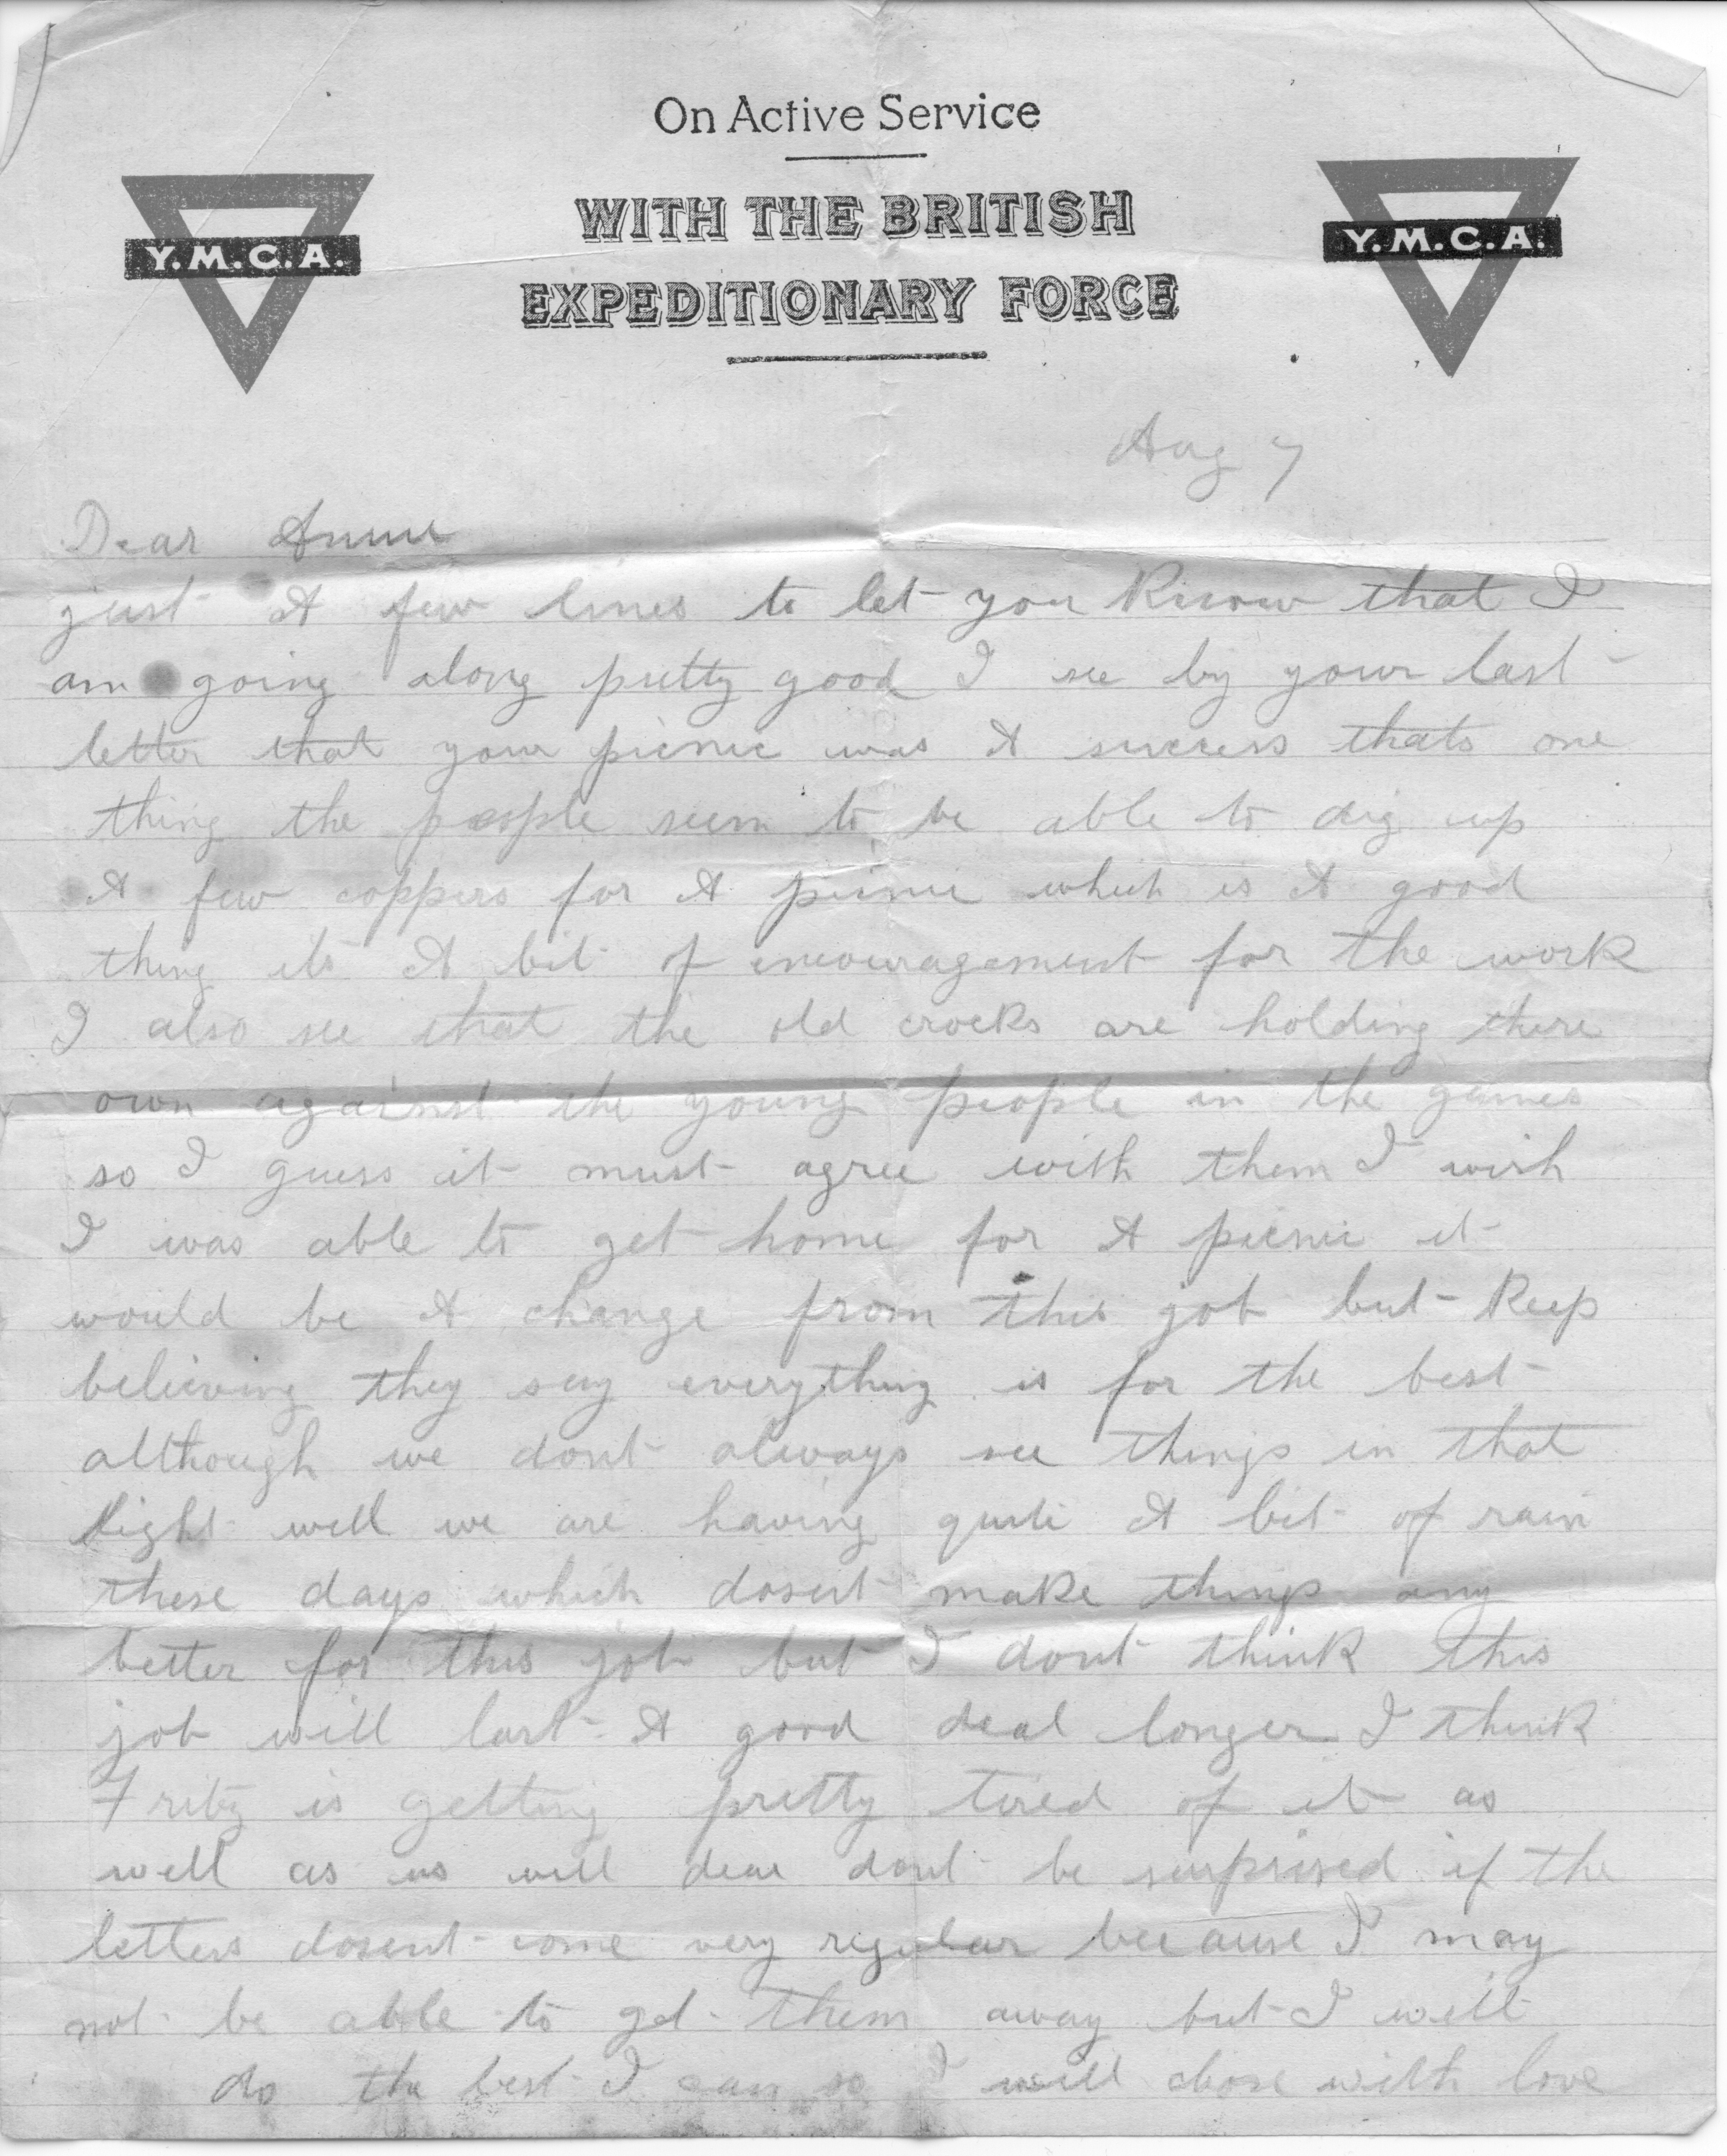 On Active Service
WITH THE BRITISH
EXPEDITIONARY FORCE
Y.M.C.A.
Y.M.C.A.
Aug 7
Dear Annie
just A few lines to let you Know that I
am going along pretty good I see by your last
letter that your picnic was A success thats one
thing the people seem to be able to dig up
A few coppers for A picnic which is A good
thing its A bit of encouragement for the work
I also see that the old crocks are holding there
own against the young people in the games
so I guess it must agree with them I wish
I was able to get home for A picnic it
would be A change from this job but Keep
believing they say everything is for the best
although we dont always see things in that
light well we are having quite A bit of rain
these days which dosent make things any
better for this job but I dont think this
job will last A good deal longer I think
Fritz is getting pretty tired of it as
well as us well dear dont be surprised if the
letters dosent come very regular because I may
not be able to get them away but I will
do the best I can so I will close with love